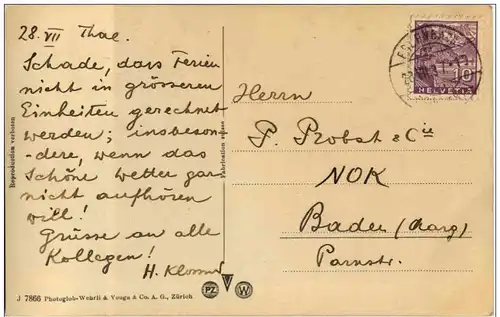 28. VII Thal.
Schade, dass Ferien
nicht in grösseren
Einheiten gerechnet
werden; insbeson-
dere, wenn das
Schöne Wetter gar
nicht aufhören
will!
Grüsse an alle
Kollegen!
H.
Reproduction verboten
Fabrication suisse
10
HELVETIA
Herrn
P. Probst & Cie
NOK
Baden (Aarg)
Parnstr.
J 7866 Photoglob-Wehrli & Vouga & Co. A. G., Zürich
PZ
V
W